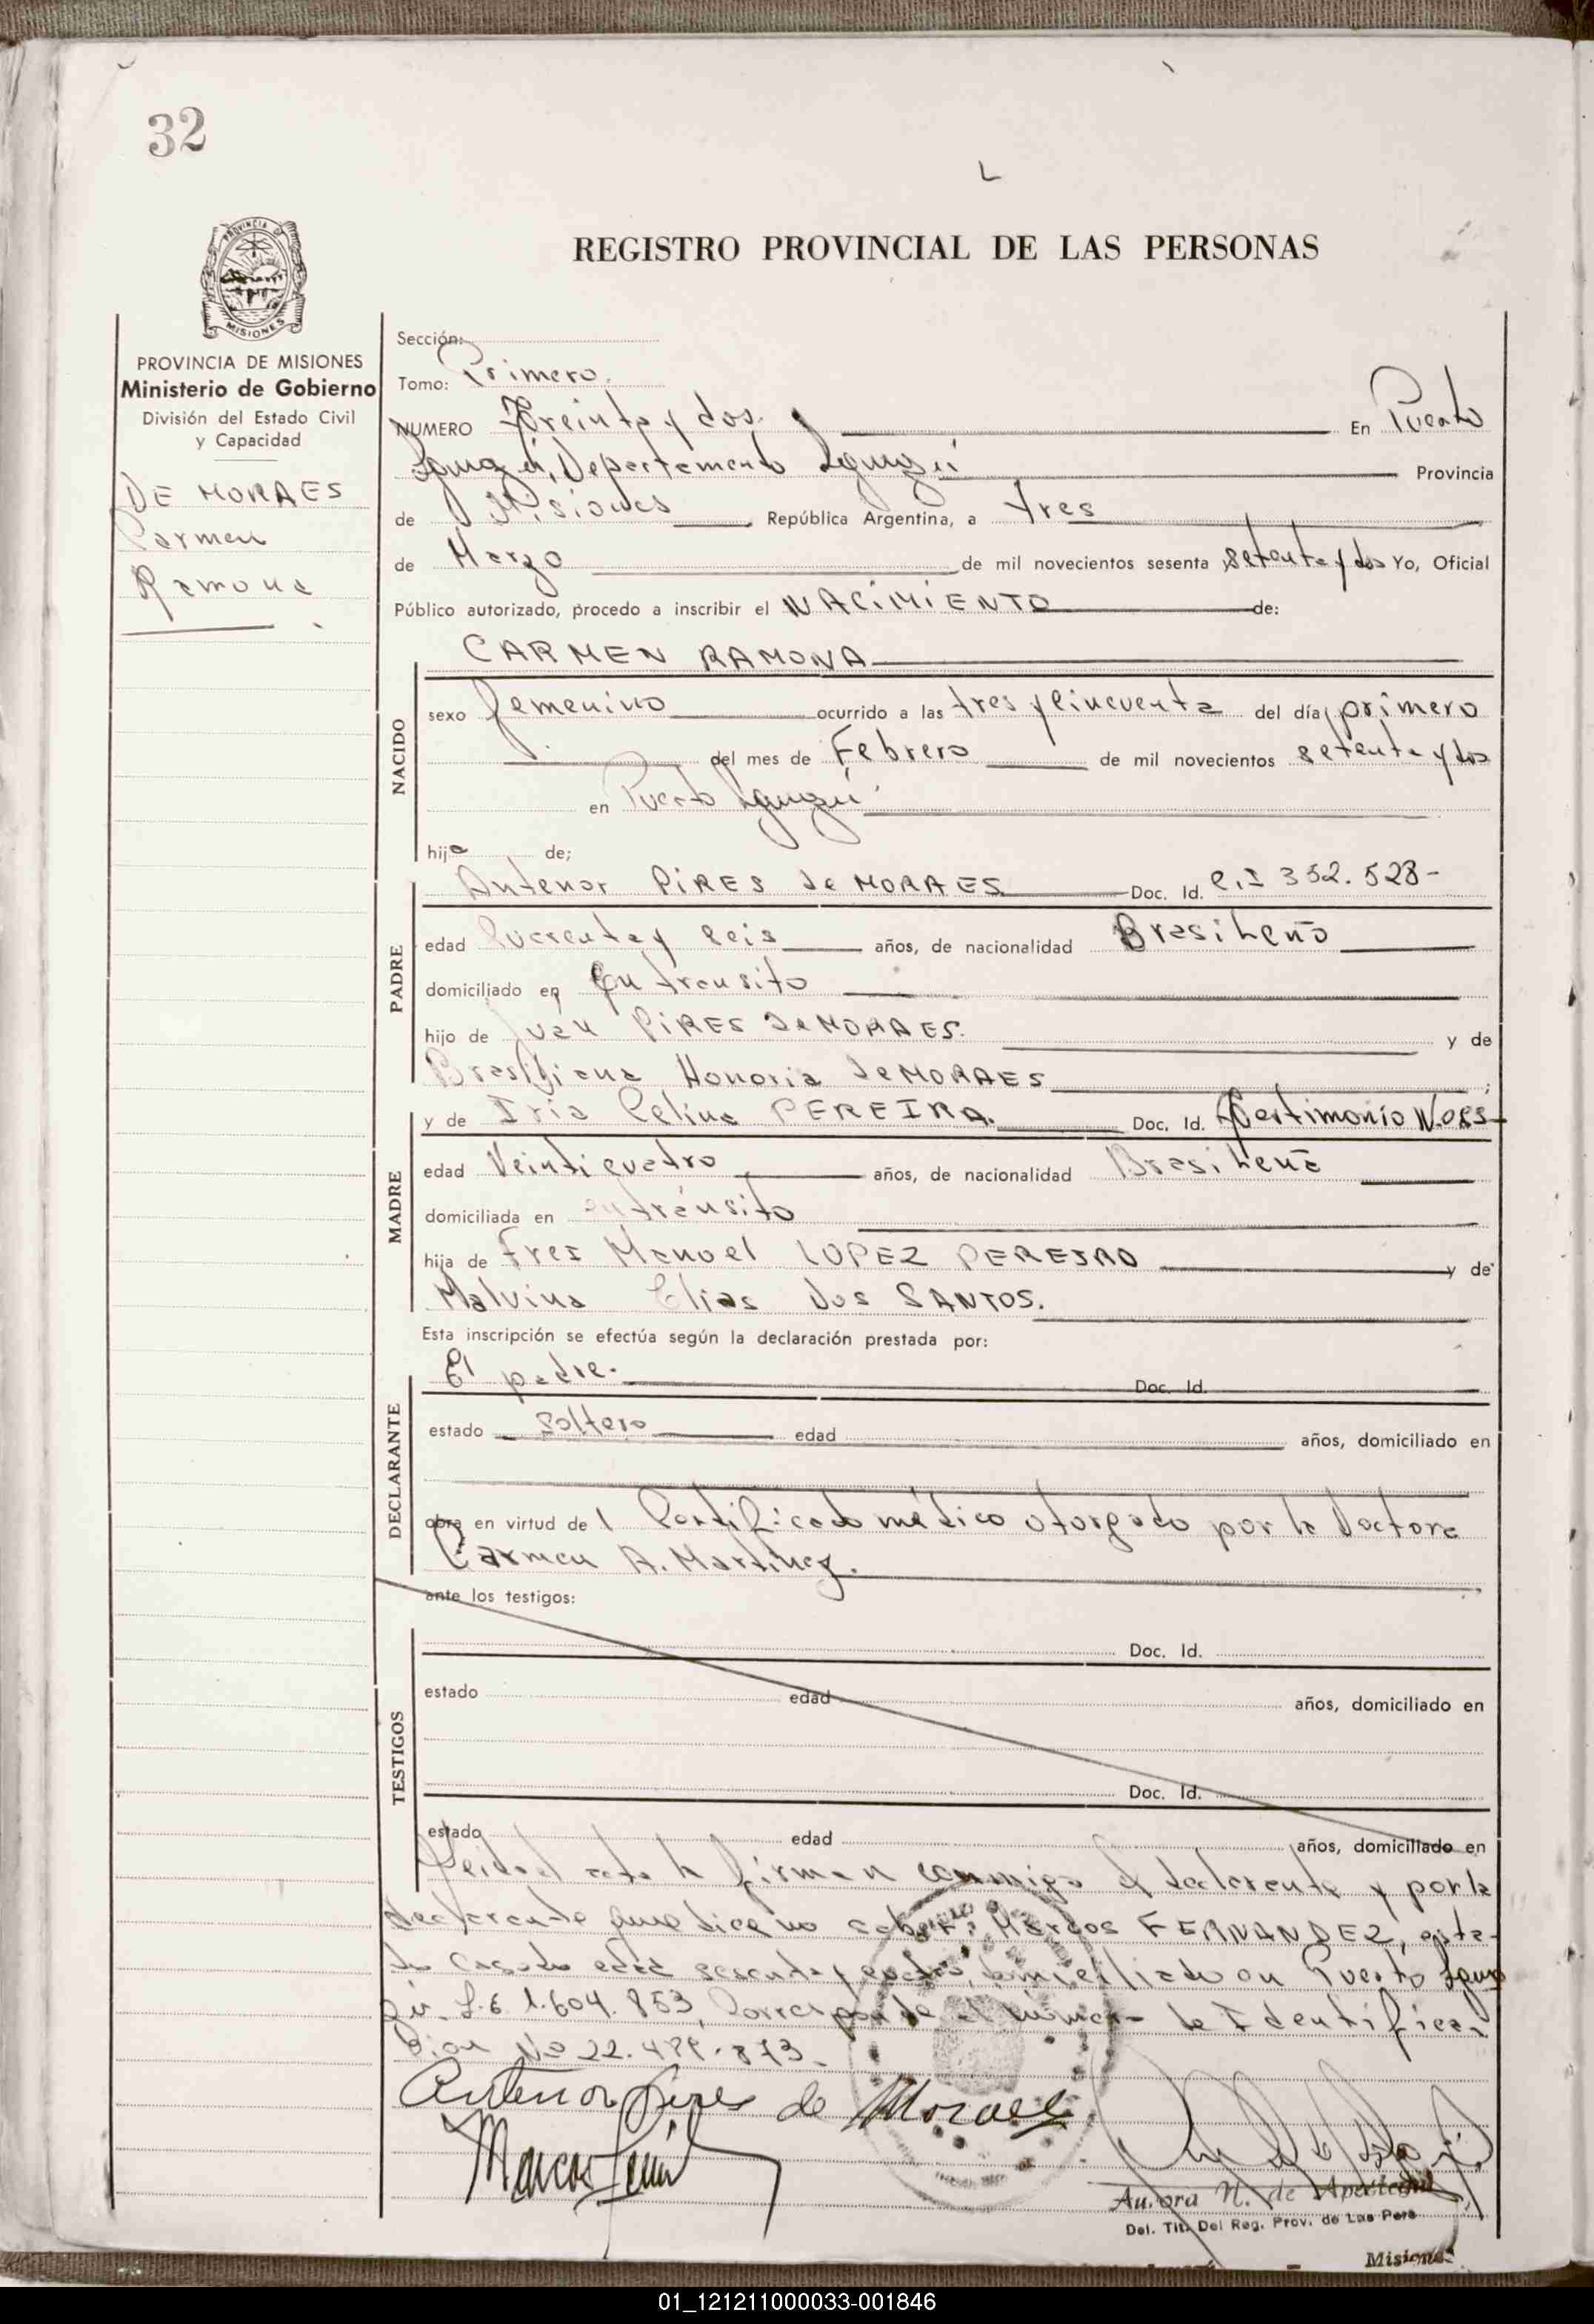 32
REGISTRO PROVINCIAL DE LAS PERSONAS
PROVINCIA
MISIONES
PROVINCIA DE MISIONES
Ministerio de Gobierno
División del Estado Civil
y Capacidad
DE MORAES
Carmen
Ramona
Sección:
Tomo: Primero.
NUMERO Treinta y dos. En Puerto
Iguazú, Departamento Iguazú Provincia
de Misiones, República Argentina, a tres
de Marzo de mil novecientos sesenta setenta y dos Yo, Oficial
Público autorizado, procedo a inscribir el NACIMIENTO de:
CARMEN RAMONA
NACIDO
sexo femenino ocurrido a las tres y Cincuenta del día primero
del mes de Febrero de mil novecientos setenta y dos
en Puerto Iguazú
hija de;
PADRE
Antenor PIRES de MORAES Doc. Id. C.I 352.528-
edad Cuarenta y seis años, de nacionalidad Brasileño
domiciliado en En transito
hijo de Juan PIRES de MORAES. y de
Honoria de MORAES;
MADRE
y de Iria Celina PEREIRA. Doc. Id.
edad Veinticuatro años, de nacionalidad Brasileña
domiciliada en en tránsito
hija de Manoel LOPEZ y de
Malvina Elias Dos SANTOS.
Esta inscripción se efectúa según la declaración prestada por:
DECLARANTE
El padre. Doc. Id.
estado soltero edad años, domiciliado en
obra en virtud del Certificado médico otorgado por la Doctora
Carmen A. Martinez.
ante los testigos:
TESTIGOS
Doc. Id.
estado edad años, domiciliado en
Doc. Id.
estado edad años, domiciliado en
Leida el acta la firman conmigo el declarante y por la
declarante que dice no saber: Marcos FERNANDEZ, esta-
do Casado edad sesenta y cuatro, domiciliado en Puerto Igua
zú. L.E 1.604.853, Corresponde el número de Identifica-
cion No
Antenor Pires de Moraes
Marcos
Aurora N. de
Del. Tit. Del Reg. Prov. de Las Pers
Misiones
01_121211000033-001846